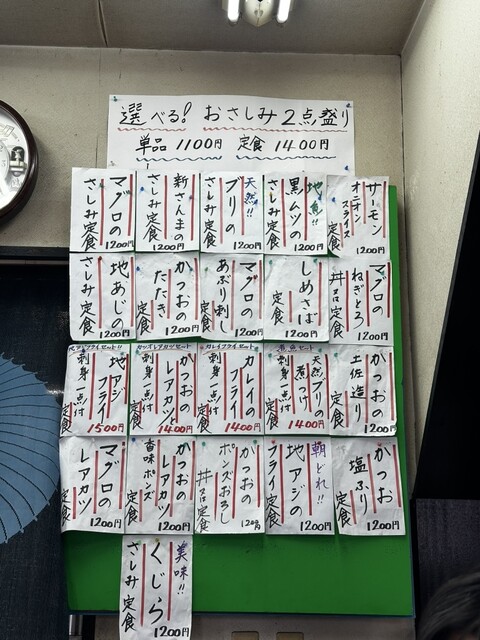 選べる! おさしみ2点盛り
単品 1100円 定食 1400円
サーモン
オニオン
スライス
定食
1200円
地魚!!
黒ムツの
さしみ定食
1200円
天然!!
ブリの
さしみ定食
1200円
新さんまの
さしみ定食
1200円
マグロの
さしみ定食
1200円
マグロの
ねぎとろ
丼又は定食
1200円
しめさば
定食
1200円
マグロの
あぶり刺し
定食
1200円
かつおの
たたき
定食
1200円
地あじの
さしみ定食
1200円
かつおの
土佐造り
定食
1200円
煮魚セット
天然ブリの
煮つけ
刺身一点付
定食
1400円
カレイフライセット!!
カレイの
フライ
刺身一点付
定食
1400円
カツオレアカツセット
かつおの
レアカツ
刺身一点付
定食
1400円
地アジフライセット!!
地アジ
フライ
刺身一点付
定食
1500円
かつお
塩ふり
定食
1200円
朝どれ!!
地アジの
フライ定食
1200円
かつおの
ポンズおろし
丼又は定食
1200円
かつおの
レアカツ
香味ポンズ
定食
1200円
マグロの
レアカツ
定食
1200円
美味!!
くじら
さしみ定食
1200円